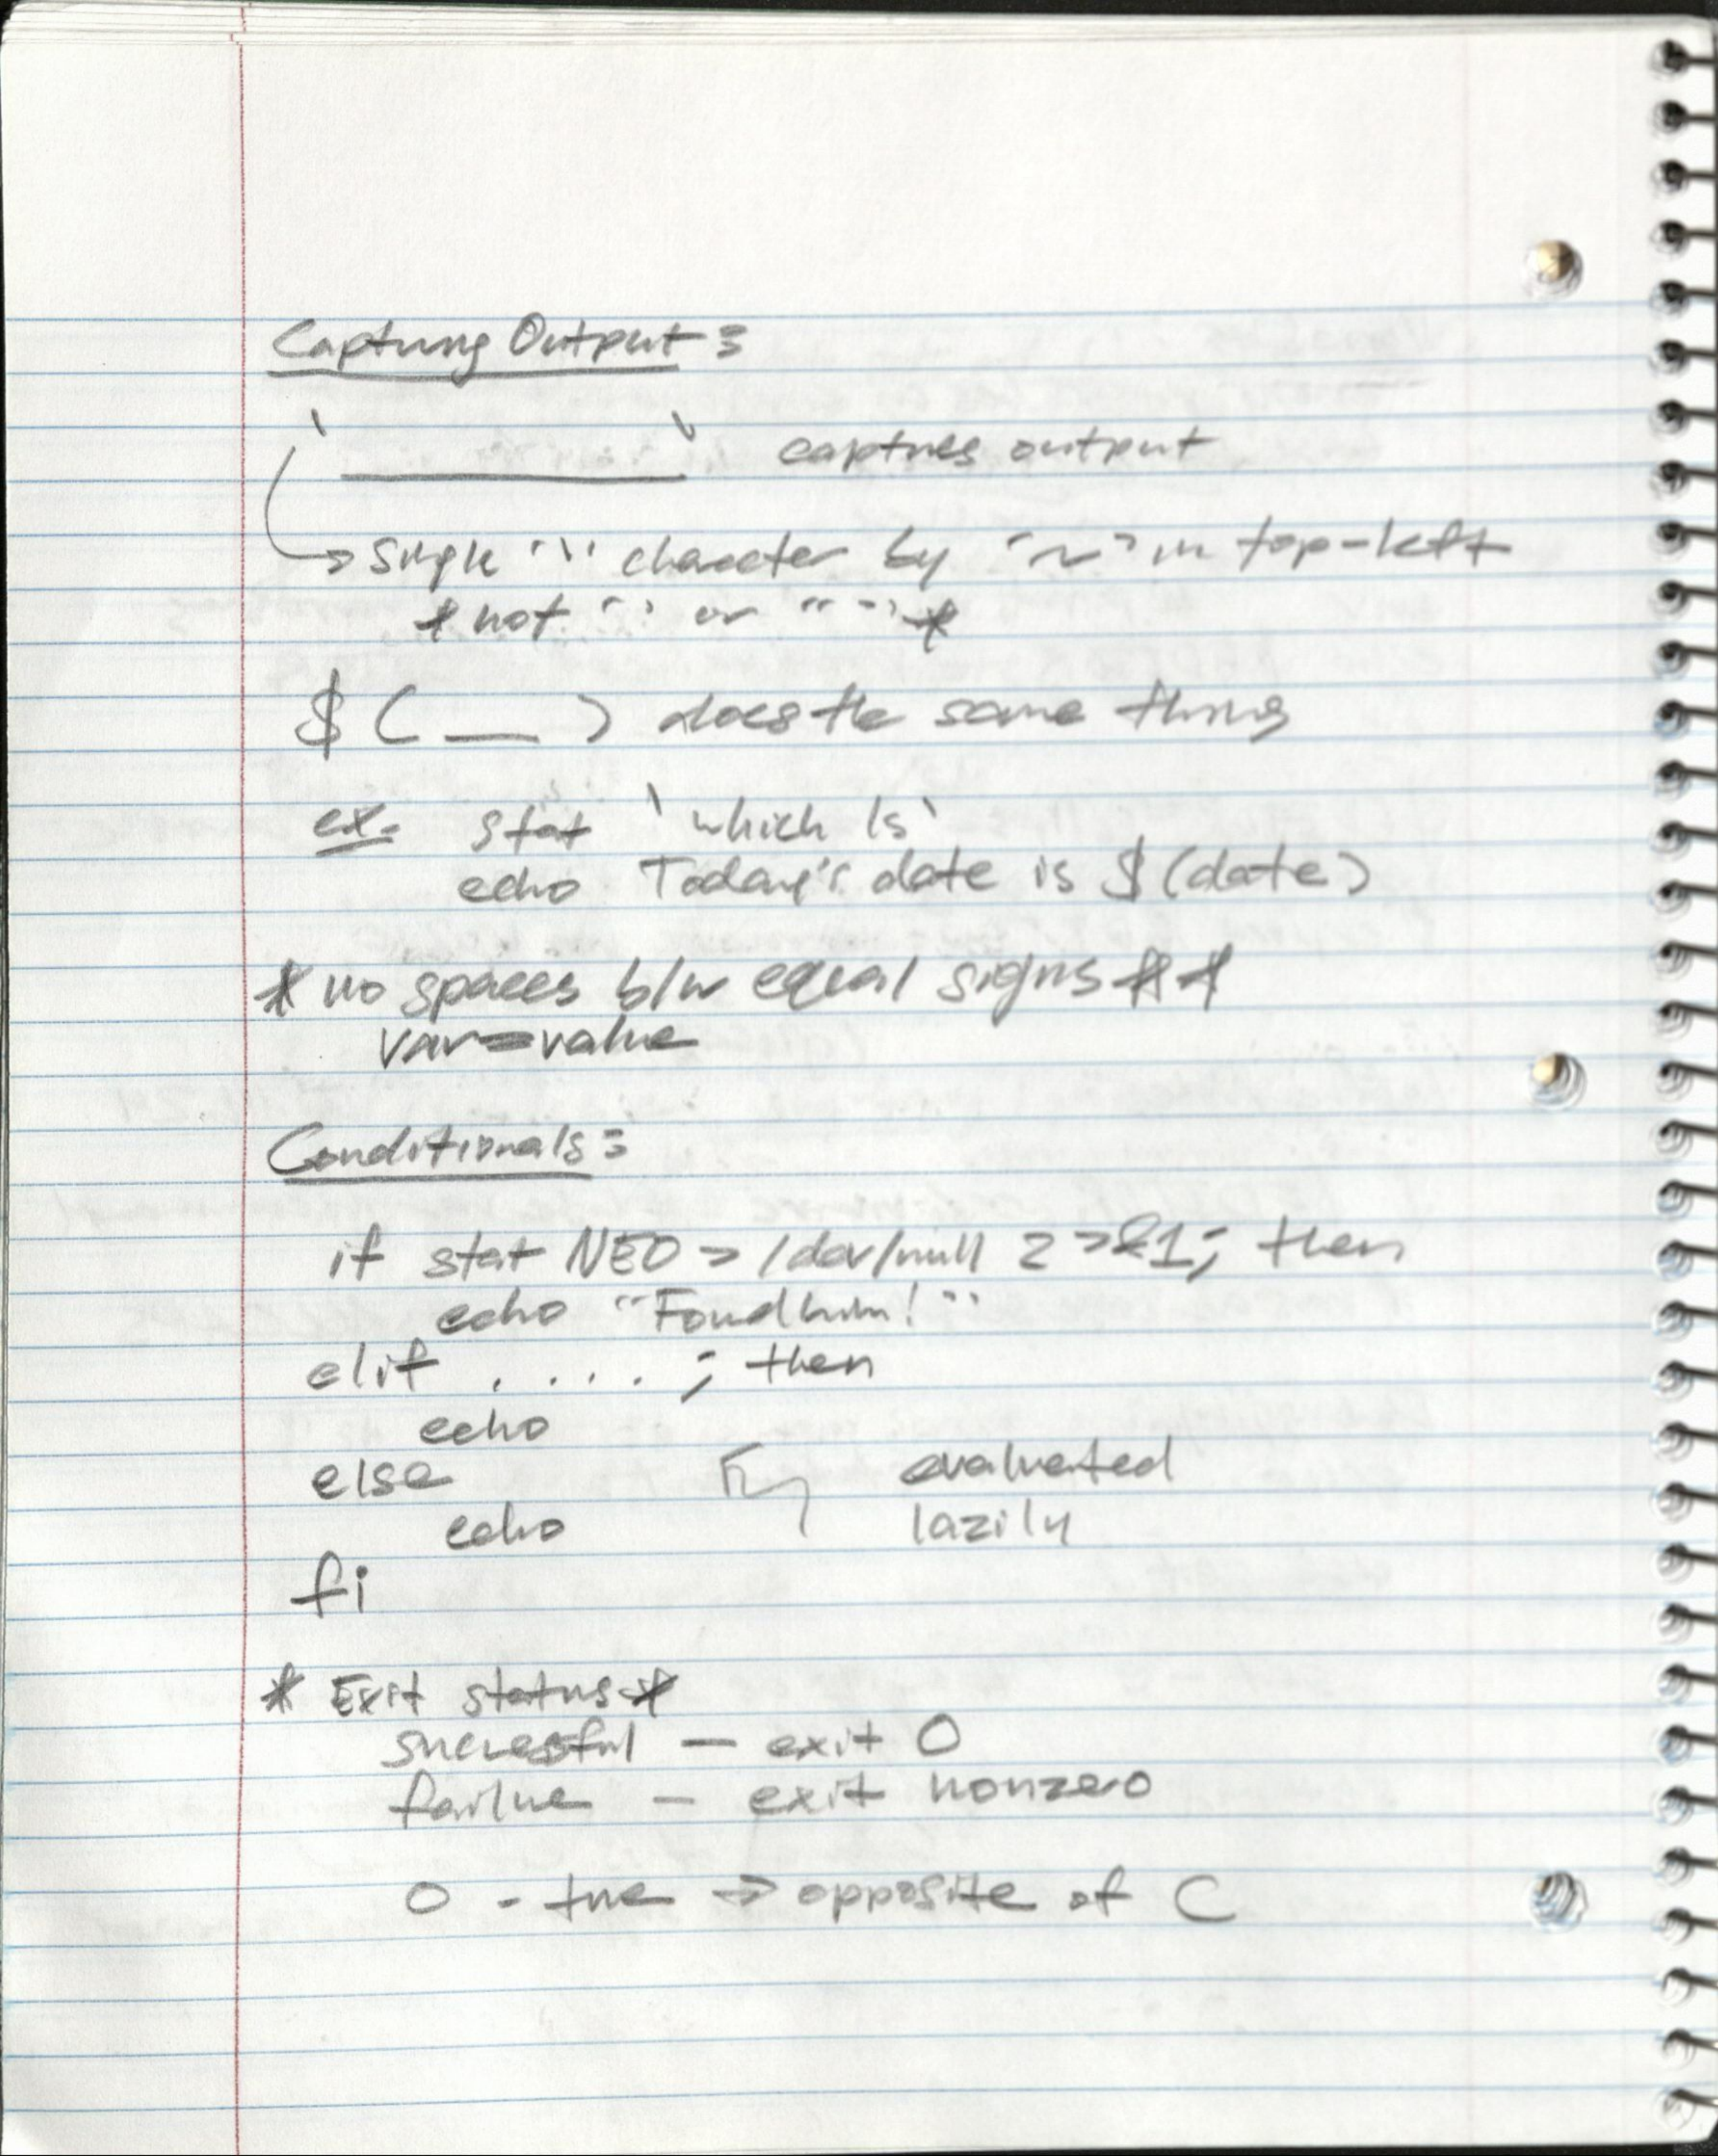 Capturing Output:
` ` captures output
→ single "`" character by "~" in top-left
* not ' ' or " " *
$ ( __ ) does the same thing
ex. stat `which ls`
echo Today's date is $(date)
* no spaces b/w equal signs **
var=value
Conditionals:
if stat NEO > /dev/null 2>&1; then
echo "Found him!"
elif . . . . . ; then
echo
else evaluated
echo lazily
fi
* Exit status *
successful — exit 0
failure — exit nonzero
0 - true → opposite of C